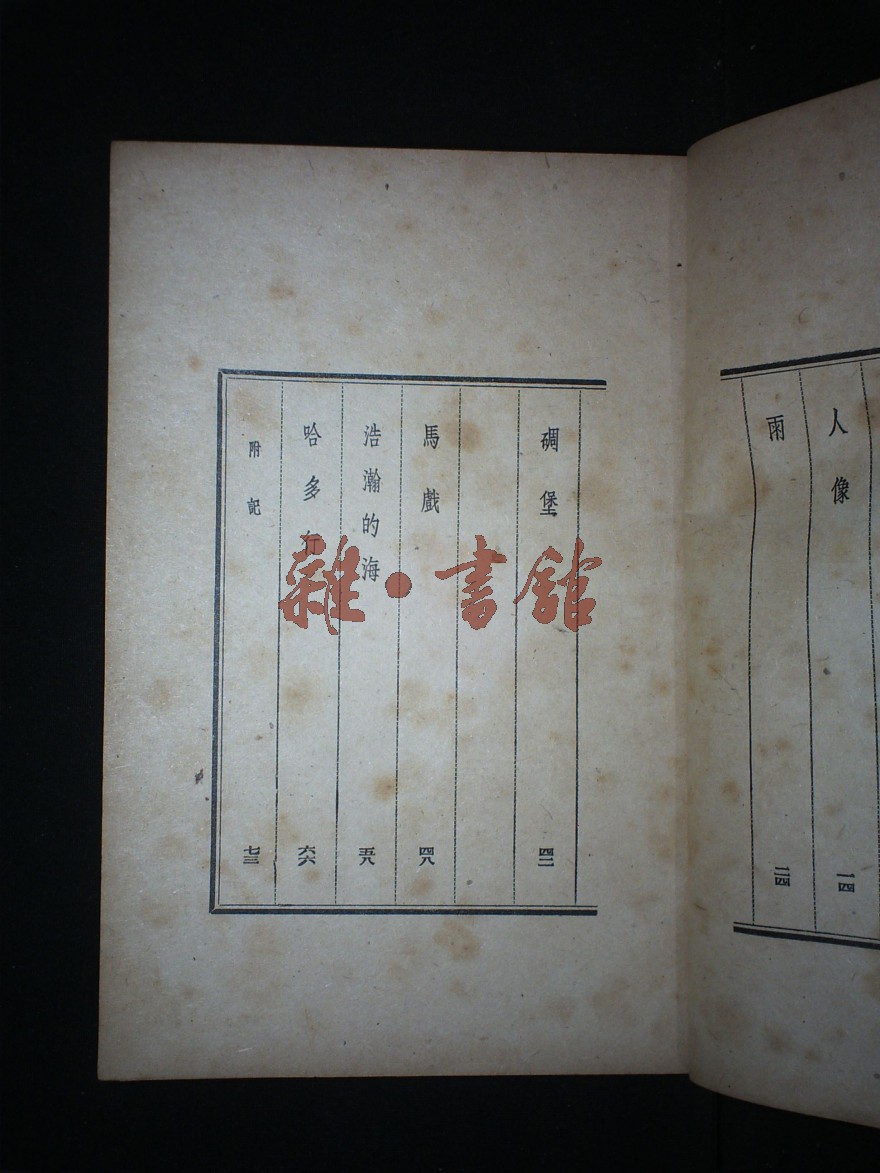 人像 一四
雨 二四
碉堡 四二
馬戲 四八
浩瀚的海 五八
哈多行 六六
附記 七三
雜·書館